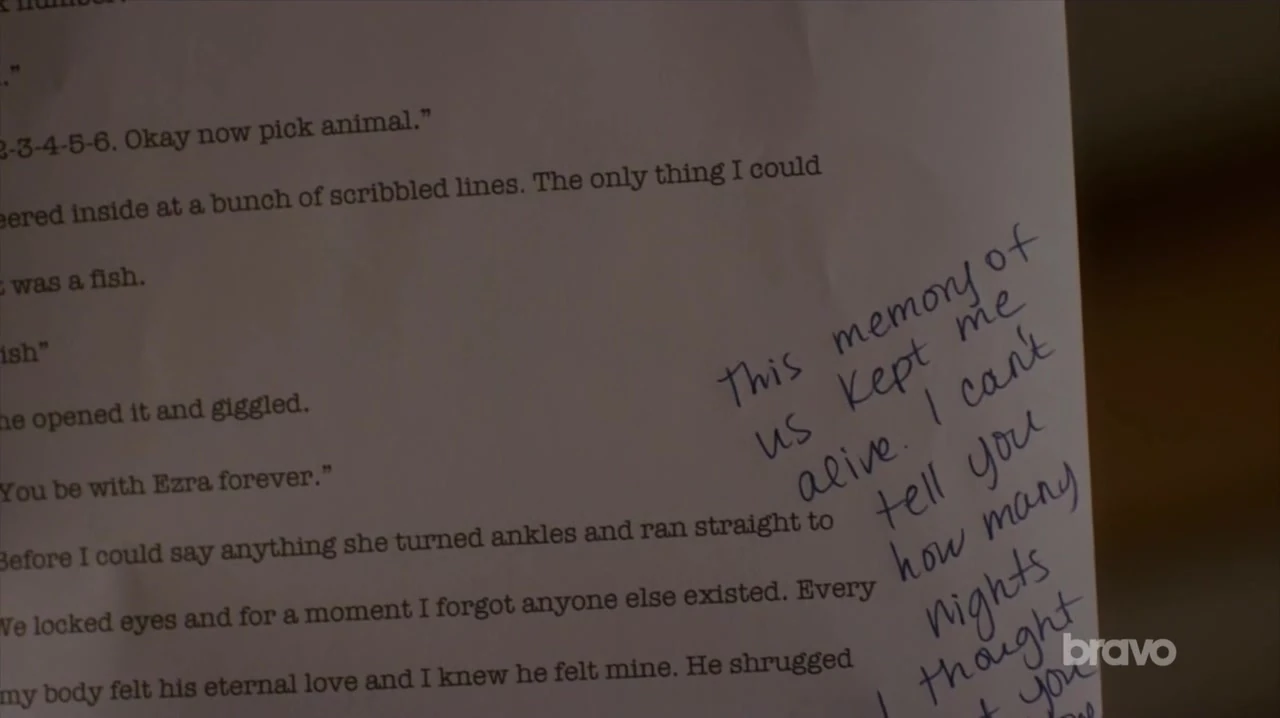 ."
2-3-4-5-6. Okay now pick animal."
eered inside at a bunch of scribbled lines. The only thing I could
was a fish.
ish"
he opened it and giggled.
You be with Ezra forever."
Before I could say anything she turned ankles and ran straight to
We locked eyes and for a moment I forgot anyone else existed. Every
my body felt his eternal love and I knew he felt mine. He shrugged
This memory of
us kept me
alive. I can't
tell you
how many
nights
I thought
you
bravo